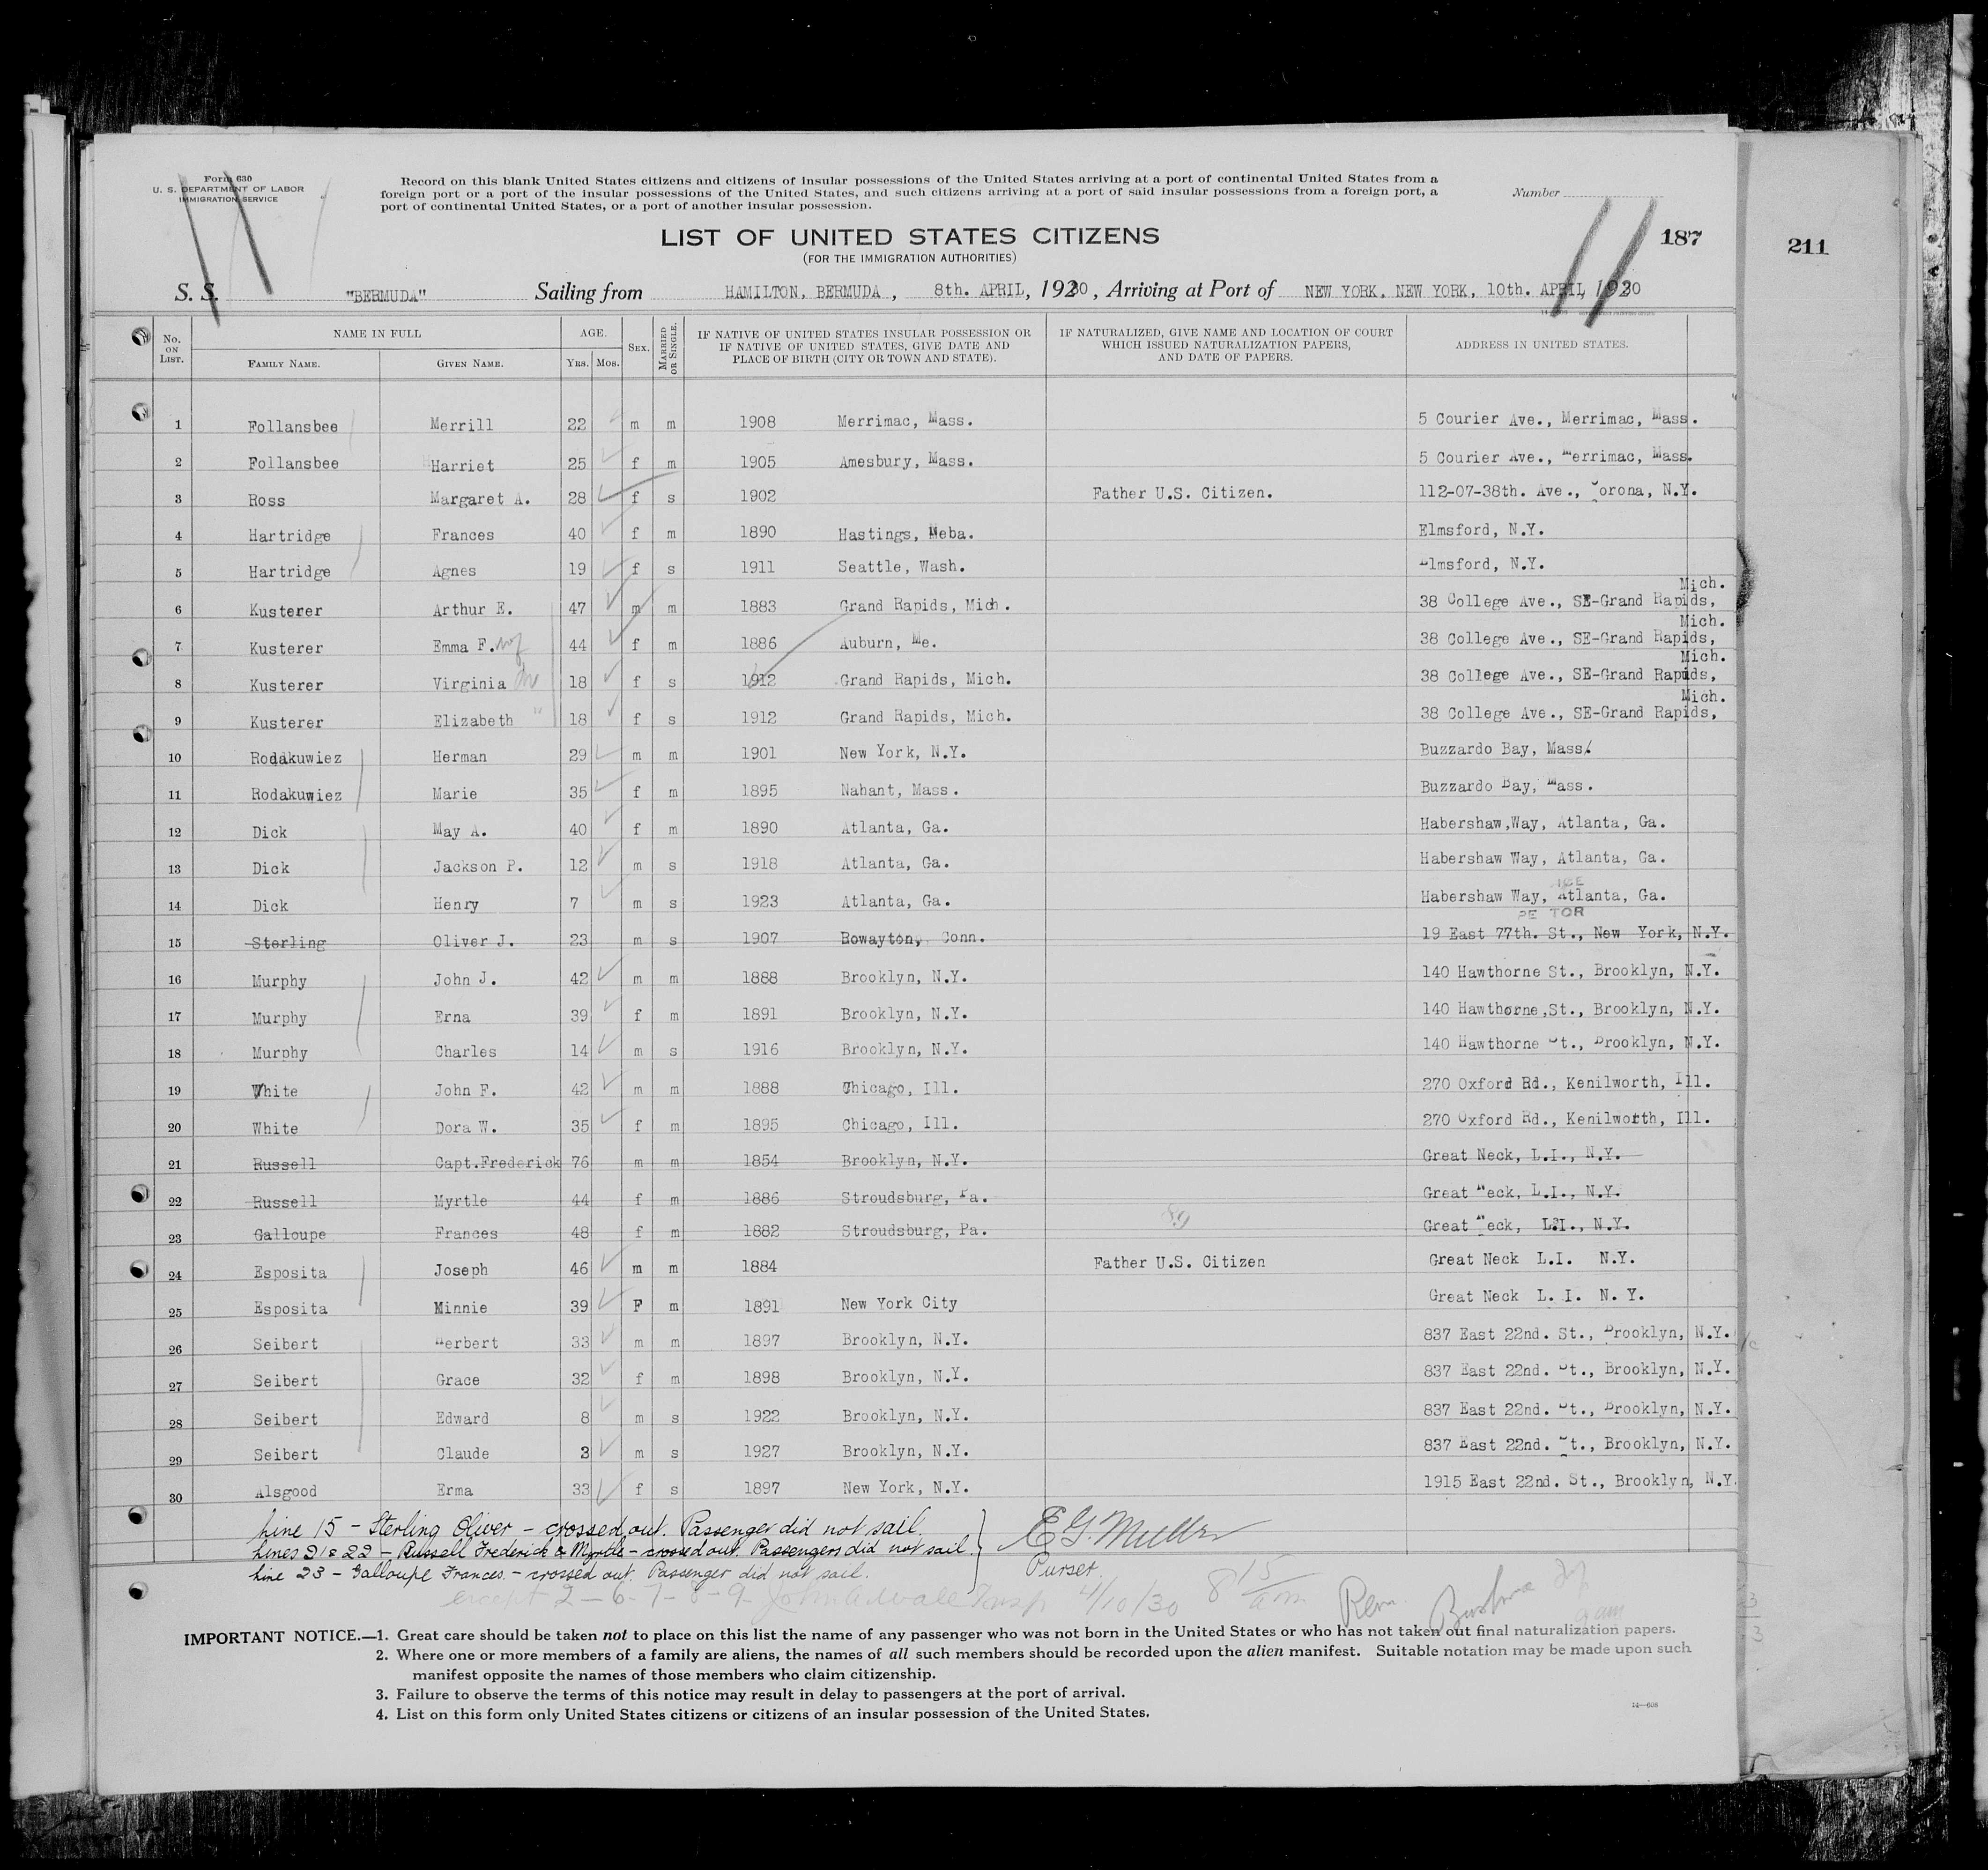 Form 630
U. S. DEPARTMENT OF LABOR
IMMIGRATION SERVICE
Record on this blank United States citizens and citizens of insular possessions of the United States arriving at a port of continental United States from a
foreign port or a port of the insular possessions of the United States, and such citizens arriving at a port of said insular possessions from a foreign port, a
port of continental United States, or a port of another insular possession.
Number
11 11
187
211
LIST OF UNITED STATES CITIZENS
(FOR THE IMMIGRATION AUTHORITIES)
S. S. "BERMUDA" Sailing from HAMILTON, BERMUDA, 8th. APRIL, 1930, Arriving at Port of NEW YORK, NEW YORK, 10th. APRIL, 1930
No. ON LIST. NAME IN FULL FAMILY NAME. GIVEN NAME. AGE. YRS. MOS. SEX. MARRIED OR SINGLE. IF NATIVE OF UNITED STATES INSULAR POSSESSION OR IF NATIVE OF UNITED STATES, GIVE DATE AND PLACE OF BIRTH (CITY OR TOWN AND STATE). IF NATURALIZED, GIVE NAME AND LOCATION OF COURT WHICH ISSUED NATURALIZATION PAPERS, AND DATE OF PAPERS. ADDRESS IN UNITED STATES.
1 Follansbee Merrill 22 m m 1908 Merrimac, Mass. 5 Courier Ave., Merrimac, Mass.
2 Follansbee Harriet 25 f m 1905 Amesbury, Mass. 5 Courier Ave., Merrimac, Mass.
3 Ross Margaret A. 28 f s 1902 Father U.S. Citizen. 112-07-38th. Ave., Corona, N.Y.
4 Hartridge Frances 40 f m 1890 Hastings, Neba. Elmsford, N.Y.
5 Hartridge Agnes 19 f s 1911 Seattle, Wash. Elmsford, N.Y.
6 Kusterer Arthur E. 47 m m 1883 Grand Rapids, Mich. 38 College Ave., SE-Grand Rapids, Mich.
7 Kusterer Emma F. wf 44 f m 1886 Auburn, Me. 38 College Ave., SE-Grand Rapids, Mich.
8 Kusterer Virginia 18 f s 1912 Grand Rapids, Mich. 38 College Ave., SE-Grand Rapids, Mich.
9 Kusterer Elizabeth " 18 f s 1912 Grand Rapids, Mich. 38 College Ave., SE-Grand Rapids, Mich.
10 Rodakuwiez Herman 29 m m 1901 New York, N.Y. Buzzardo Bay, Mass.
11 Rodakuwiez Marie 35 f m 1895 Nahant, Mass. Buzzardo Bay, Mass.
12 Dick May A. 40 f m 1890 Atlanta, Ga. Habershaw,Way, Atlanta, Ga.
13 Dick Jackson P. 12 m s 1918 Atlanta, Ga. Habershaw Way, Atlanta, Ga.
14 Dick Henry 7 m s 1923 Atlanta, Ga. Habershaw Way, Atlanta, Ga.
15 Sterling Oliver J. 23 m s 1907 Rowayton, Conn. 19 East 77th. St., New York, N.Y.
16 Murphy John J. 42 m m 1888 Brooklyn, N.Y. 140 Hawthorne St., Brooklyn, N.Y.
17 Murphy Erna 39 f m 1891 Brooklyn, N.Y. 140 Hawthorne,St., Brooklyn, N.Y.
18 Murphy Charles 14 m s 1916 Brooklyn, N.Y. 140 Hawthorne St., Brooklyn, N.Y.
19 White John F. 42 m m 1888 Chicago, Ill. 270 Oxford Rd., Kenilworth, Ill.
20 White Dora W. 35 f m 1895 Chicago, Ill. 270 Oxford Rd., Kenilworth, Ill.
21 Russell Capt.Frederick 76 m m 1854 Brooklyn, N.Y. Great Neck, L.I., N.Y.
22 Russell Myrtle 44 f m 1886 Stroudsburg, Pa. Great Neck, L.I., N.Y.
23 Galloupe Frances 48 f m 1882 Stroudsburg, Pa. Great Neck, L.I., N.Y.
24 Esposita Joseph 46 m m 1884 Father U.S. Citizen Great Neck L.I. N.Y.
25 Esposita Minnie 39 F m 1891 New York City Great Neck L. I. N. Y.
26 Seibert Herbert 33 m m 1897 Brooklyn, N.Y. 837 East 22nd. St., Brooklyn, N.Y.
27 Seibert Grace 32 f m 1898 Brooklyn, N.Y. 837 East 22nd. St., Brooklyn, N.Y.
28 Seibert Edward 8 m s 1922 Brooklyn, N.Y. 837 East 22nd. St., Brooklyn, N.Y.
29 Seibert Claude 3 m s 1927 Brooklyn, N.Y. 837 East 22nd. St., Brooklyn, N.Y.
30 Alsgood Erma 33 f s 1897 New York, N.Y. 1915 East 22nd. St., Brooklyn, N.Y.
Line 15 - Sterling Oliver - crossed out. Passenger did not sail.
Lines 21 & 22 - Russell Frederick & Myrtle - crossed out. Passengers did not sail.
Line 23 - Galloupe Frances - crossed out. Passenger did not sail.
E G. Muller
Purser.
except 2-6-7-8-9- Insp 4/10/30 8 15 am
IMPORTANT NOTICE.—1. Great care should be taken not to place on this list the name of any passenger who was not born in the United States or who has not taken out final naturalization papers.
2. Where one or more members of a family are aliens, the names of all such members should be recorded upon the alien manifest. Suitable notation may be made upon such
manifest opposite the names of those members who claim citizenship.
3. Failure to observe the terms of this notice may result in delay to passengers at the port of arrival.
4. List on this form only United States citizens or citizens of an insular possession of the United States.
14—608